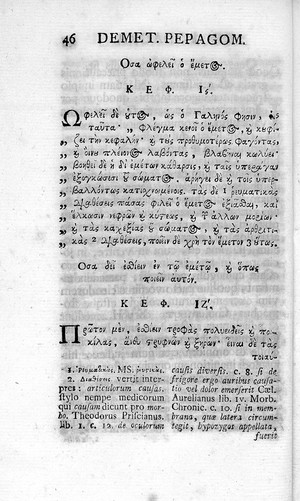 46 DEMET. PEPAGOM.
Οσα ὠφελεῖ ὁ ἔμετος.
Κ Ε Φ. Ις΄.
Ωφελεῖ δὲ οὕτως, ὡς ὁ Γαληνός φησιν,
ταῦτα· „ φλέγμα κενοῖ ὁ ἔμετος, ϗ κουφί-
„ ζει τὴν κεφαλὴν· ϗ τὲς προθυμοτέρως φαγόντας,
„ ϗ οἶνον πλείονα λαβόντας, βλαβῆναι κωλύει·
„ βοηθεῖ δὲ ἡ δι᾽ ἐμέτων κάθαρσις, ϗ ταῖς
„ ἐξογκώσεσι τοῦ σώματος, ἀρήγει δὲ ϗ τοῖς ὑπερ-
„ βαλλόντως κατισχνουμένοις. τὰς δὲ 1 ρευματικὰς
„ διαθέσεις πάσας φιλεῖ ὁ ἔμετος ἐξιᾶσθαι, ϗ
„ ἕλκωσιν νεφρῶν ϗ κύστεως, ϗ τῶν ἄλλων μορίων·
„ ϗ τὰς καχεξίας τοῦ σώματος, ϗ τὰς ἀρθριτι-
κὰς 2 διαθέσεις, ποιεῖν δὲ χρὴ τὸν ἔμετον 3 οὕτως.
Οσα δεῖ ἐσθίειν ἐν τῷ ἐμέτῳ, ϗ ὅπως
ποιεῖν αὐτόν.
Κ Ε Φ. ΙΖ΄.
Πρῶτον μὲν, ἐσθίειν τροφὰς πολυειδεῖς ϗ ποι-
κίλας, ἄνευ τρυφνῶν ϗ ξηρῶν· οἷαι δὲ τὰς
τοιαυ-
1. Ρευματικὰς. MS.
2. Διαθέσεις vertit inter-
pres: articulorum causas.
stylo nempe medicorum
qui causam dicunt pro mor-
bo. Theodorus Priscianus.
lib. 1. c. 12. de oculorum
causis diversis. c. 8. si de
frigore ergo auribus causa-
tio vel dolor emerserit Cæl.
Aurelianus lib. IV. Morb.
Chronic. c. 10. si in mem-
brana, quæ latera circum-
tegit, hypozygos appellata,
fuerit